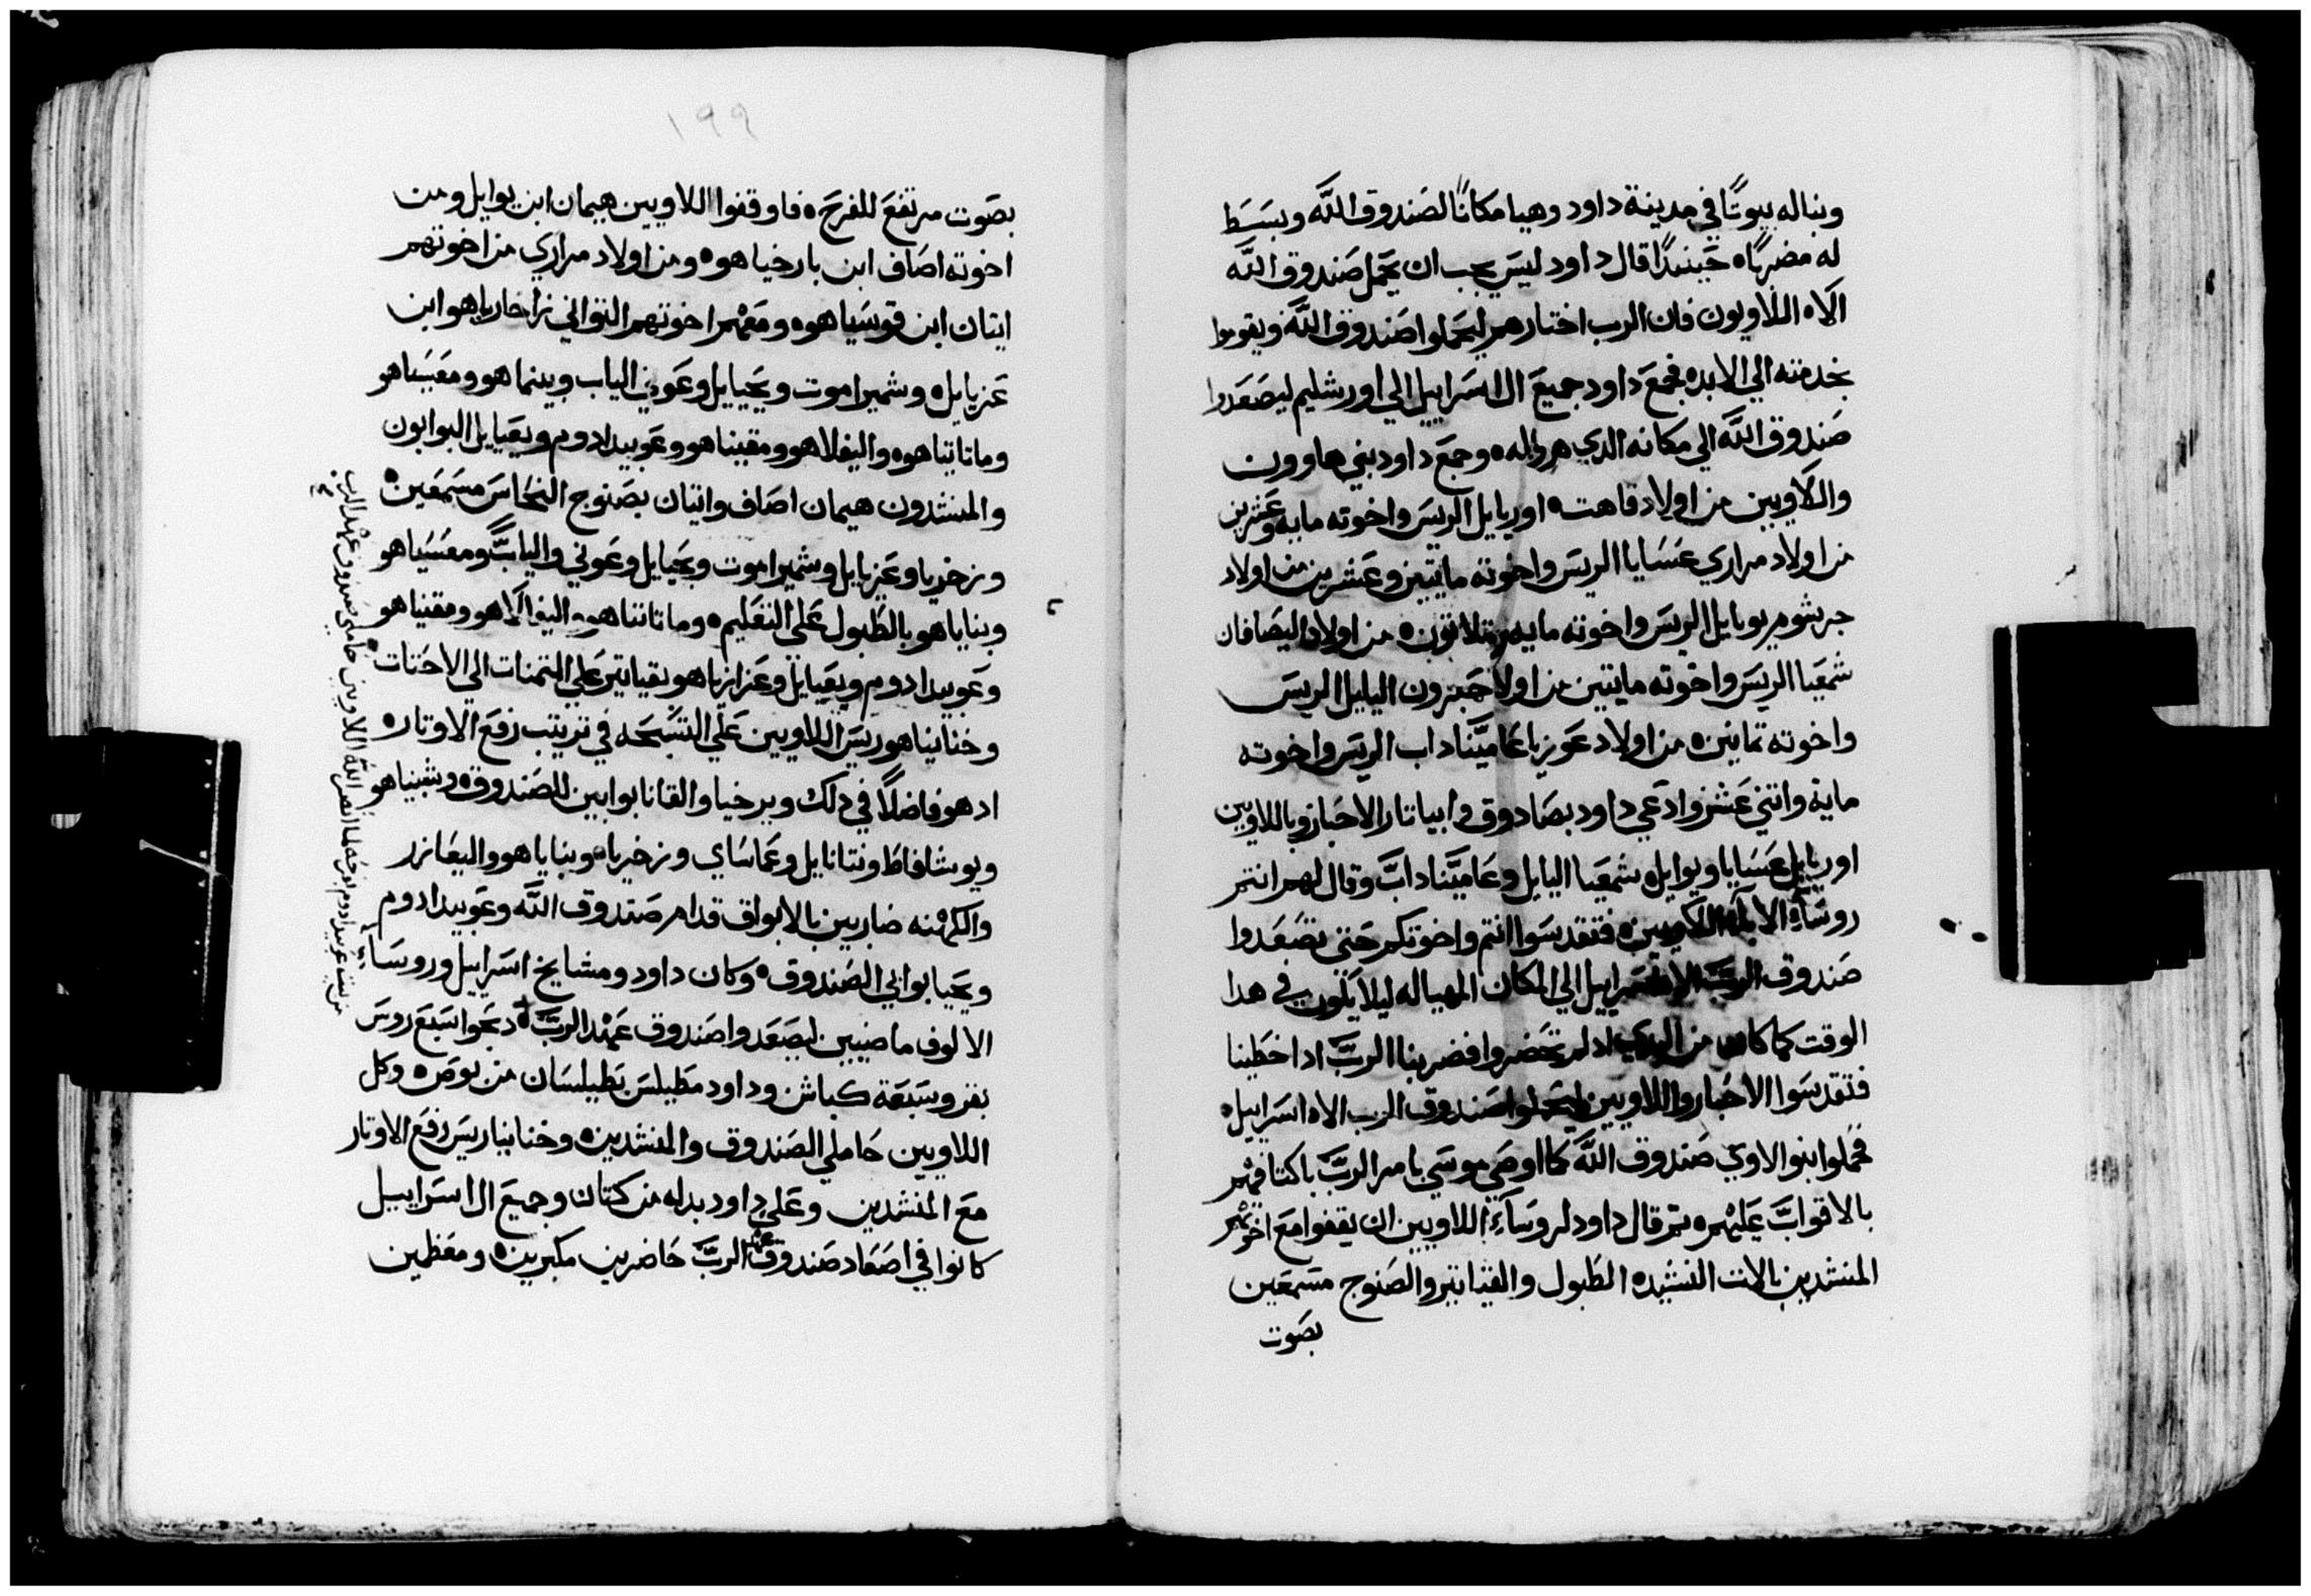 وبنا له بيوتًا في مدينة داود وهيا مكانًا لصندوق اللَّه وبسط
له مضربًا ه حينيدًا قال داود ليس يجب ان يحمل صندوق اللَّه
الاه اللاويون فان الرب اختارهم ليحملوا صندوق اللَّه ويقوموا
بخدمته الي الابد ه فجمع داود جميع ال اسراييل الي اورشليم ليصعدوا
صندوق اللَّه الي مكانه الدي هيا له ه وجمع داود بني هاورن
واللاويين من اولاد قاهت ه اوريايل الريس واخوته مايه وعشرين
من اولاد مراري عسايا الريس واخوته مايتين وعشرين من اولاد
جرشوم يوبايل الريس واخوته مايه وتلاتون ه من اولاد اليصافان
شمعيا الريس واخوته مايتين من اولاد حبرون اليايل الريس
واخوته تمانين ه من اولاد عوزيا عاميَّناداب الريس واخوته
ماية واتني عشر وادعي داود بصادوق وابياتار الاحبار وباللاويين
اوريايل عسايا ويوايل ه شمعيا اليايل وعاميَّنادابَّ وقال لهم انتم
روساء الابا اللاويين ه فتقدسوا انتم واخوتكم حتي تصعدوا
صندوق الربَّ الاه اسراييل الي المكان المهيا له ليلا يكون في هدا
الوقت كما كان من البدي اد لم تحضروا فضربنا الربَّ ادا خطينا
فتقدسوا الاحبار واللاويين ليحملوا صندوق الرب الاه اسراييل ه
فحملوا بنوا لاوي صندوق اللَّه كما اوصي موسي بامر الربَّ باكتافهم
بالاقوابَّ عليهم ه تم قال داود لروساء اللاويين ان يقفوا مع اخوتهم
المنشدين بالات النشيده الطبول والقيتاتير والصنوج مسمعين
بصوت
١٩٩
بصوت مرتفع للفرح ه فاوقفوا اللاويين هيمان ابن يوايل ومن
اخوته اصاف ابن بارخياهو ه ومن اولاد مراري من اخوتهم
ايتان ابن قوسياهو ه ومعهم اخوتهم التواني زاخارياهو ابن
عزيايل ه وشميراموت ويحيايل وعوني الياب وبينهاهو ومعسياهو
وماتاتياهو ه واليفلاهو ومقيناهو وعوبيد ادوم ويعيايل البوابون
والمنشدون هيمان اصاف وايتان بصنوج النحاس مسمعين ه
وزخريا وعزيايل وشميراموت ويحيايل وعوني واليابَّ ومعسياهو
وبناياهو بالطبول علي التعليم ه وماتاتناهو واليفالاهو ومقنياهو
وعوبيد ادوم ويعيايل وعزازياهو بقياتير علي التمنات الي الاحتات ه
وخنانياهو ريس اللاويين علي التسبحه في ترتيب رفع الاوتار ه
اد هو فاضلًا في دلك وبرخيا والقانا بوابين للصندوق ه وشبنياهو
ويوشافاط ونتنانايل وعماساي وزخريا ه وبناياهو واليعازر
والكهنه ضاربين بالابواق قدام صندوق اللَّه وعوبيد ادوم
ويحيا بوابي الصندوق ه وكان داود ومشايخ اسراييل وروسا
الالوف ماضيين ليصعدوا صندوق عهد الربَّ دبحوا سبع روس
بقر وسبعة كباش وداود مطيلس بطيلسان من بوص ه وكل
اللاويين حاملي الصندوق والمنشدين ه وخنانيا ريس رفع الاوتار
مع المنشدين وعلي داود بدله من كتان وجميع ال اسراييل
كانوا في اصعاد صندوق عهد الربَّ حاضرين مكبرين ه ومعظمين
من بيت عوبيد ادوم بفرحه لما نصر اللَّه اللاويين حاملي صندوق عهد الرب